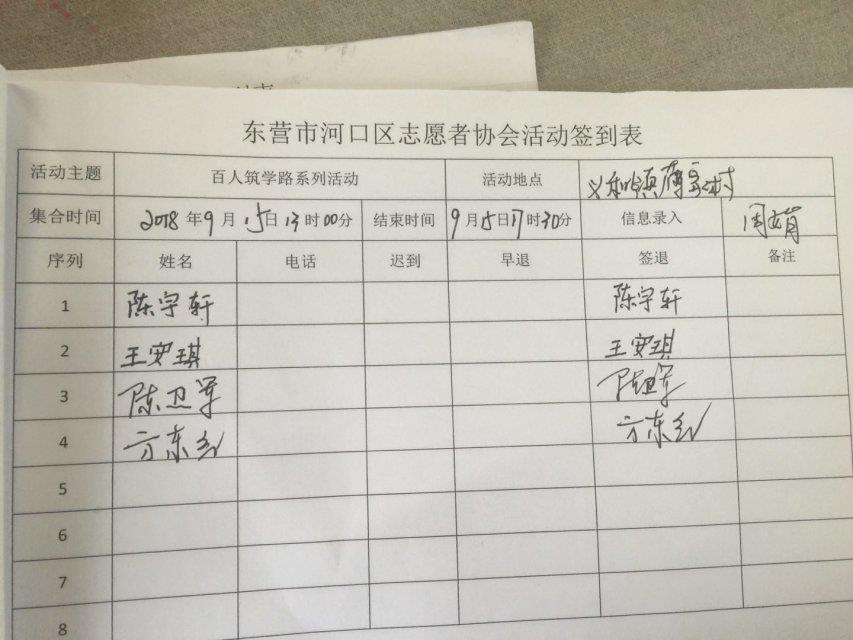 东营市河口区志愿者协会活动签到表
活动主题 百人筑学路系列活动 活动地点 义和镇薄家村
集合时间 2018年9月15日13时00分 结束时间 9月15日17时30分 信息录入 周
序列 姓名 电话 迟到 早退 签退 备注
1 陈宇轩 陈宇轩
2 王安琪 王安琪
3 陈卫军 陈卫军
4 方东 方东
5
6
7
8